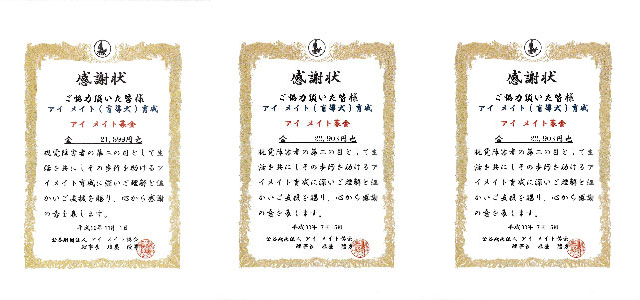 感謝状
ご協力頂いた皆様
アイメイト(盲導犬)育成
アイメイト募金
金 21,899円也
視覚障害者の第二の目として生
活を共にしその歩行を助けるア
イメイト育成に深いご理解と温
かいご支援を賜り、心から感謝
の意を表します。
公益財団法人アイメイト協会
感謝状
ご協力頂いた皆様
アイメイト(盲導犬)育成
アイメイト募金
金 22,903円也
視覚障害者の第二の目として生
活を共にしその歩行を助けるア
イメイト育成に深いご理解と温
かいご支援を賜り、心から感謝
の意を表します。
公益財団法人アイメイト協会
感謝状
ご協力頂いた皆様
アイメイト(盲導犬)育成
アイメイト募金
金 22,903円也
視覚障害者の第二の目として生
活を共にしその歩行を助けるア
イメイト育成に深いご理解と温
かいご支援を賜り、心から感謝
の意を表します。
公益財団法人アイメイト協会